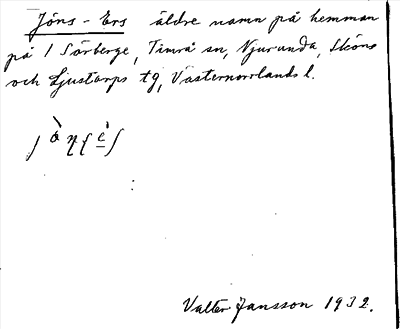 Jöns-Ers äldre namn på hemman
på 1 Sörberge, Timrå sn, Njurunda, Sköns
och Ljustorps tg, Västernorrlands l.
Valter Jansson 1932.